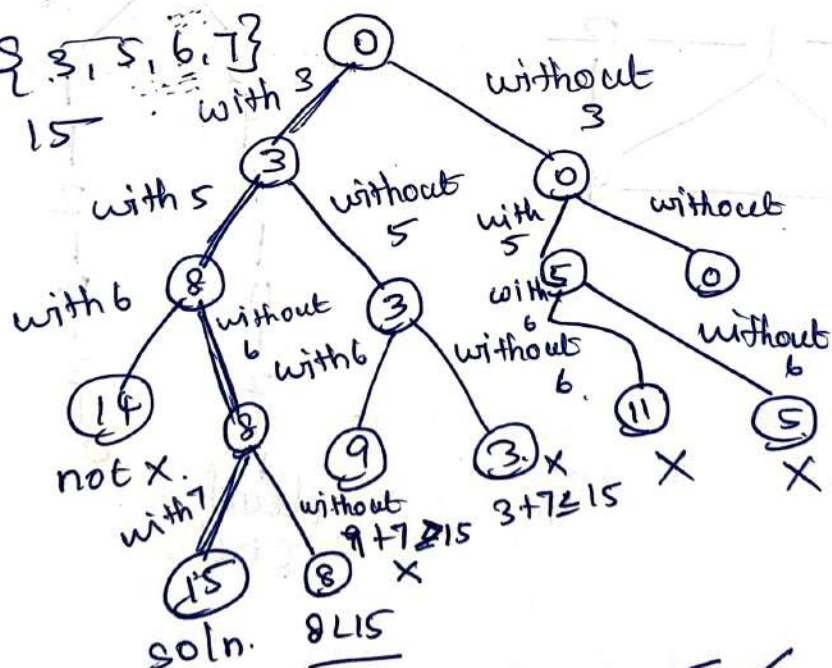 {3, 5, 6, 7}
15
0
with 3
without
3
3
0
with 5
without
5
with
5
without
8
3
5
0
with 6
without
6
with 6
without
6.
with
6
without
6
14
8
9
3. X
11
5
not X.
9+7≥15
X
3+7≤15
X
X
with 7
without
15
8
soln.
8<15